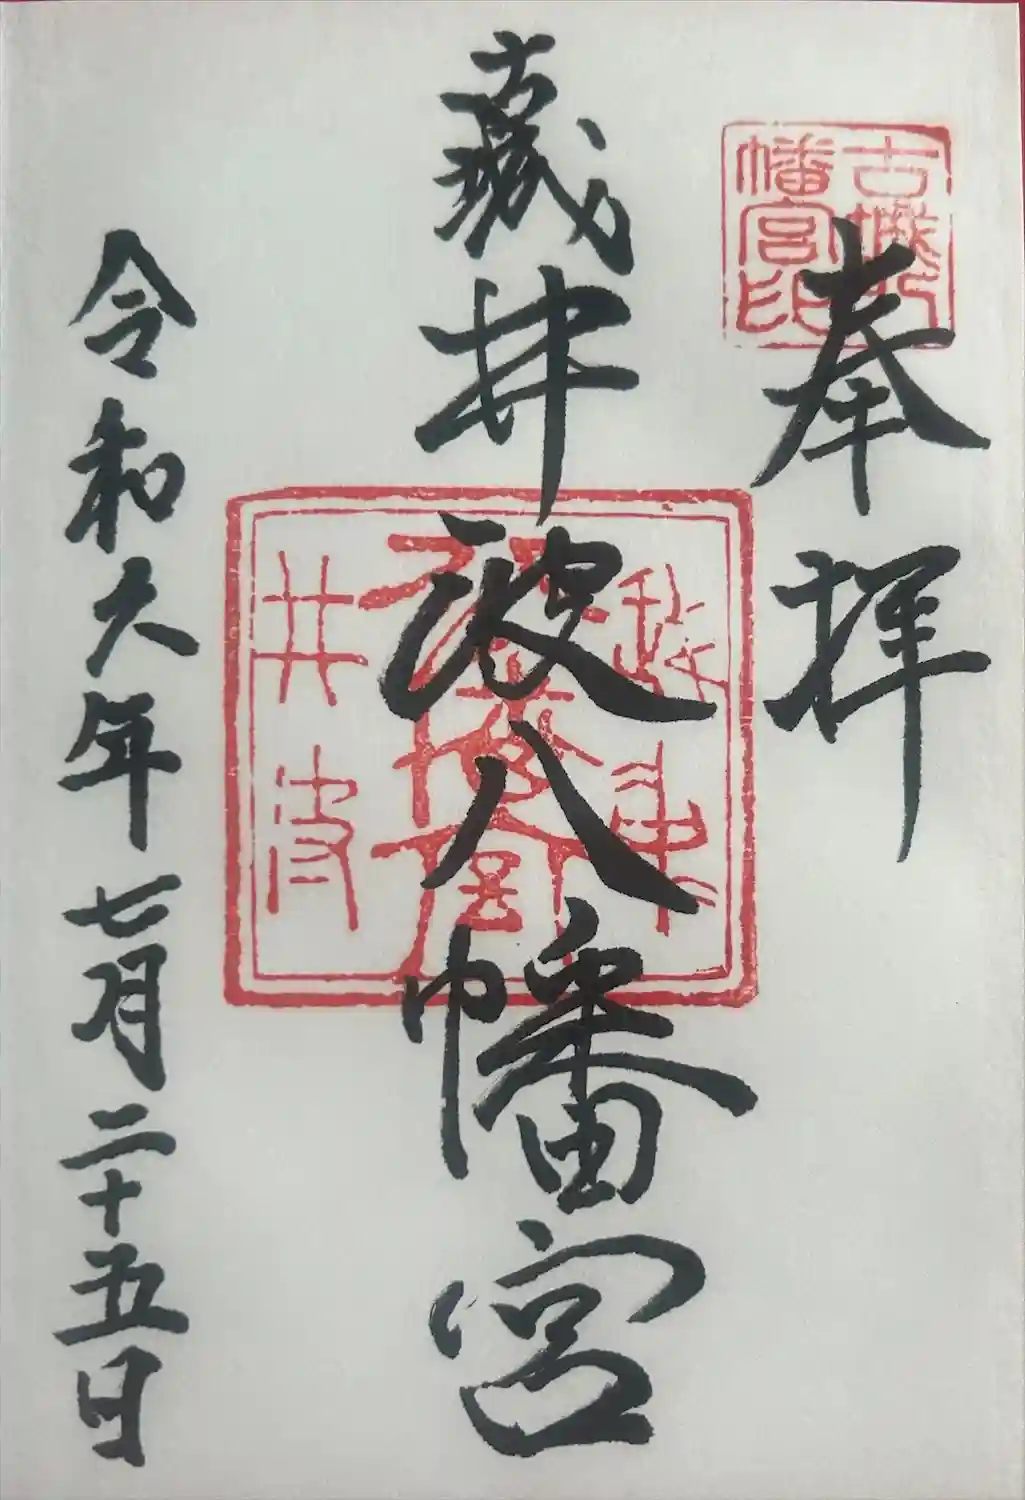 奉拝
古城八
幡宮印
古城
井波八幡宮
越中
八幡宮
井波
令和六年七月二十五日